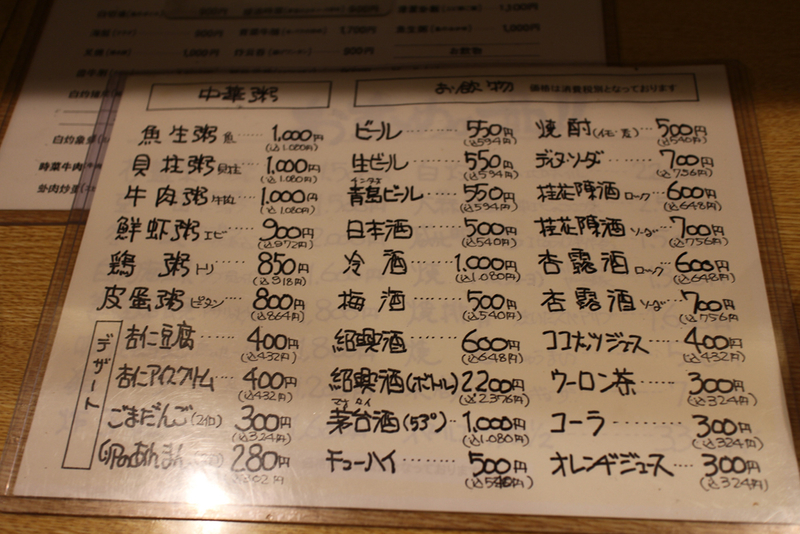 1,000円
900円
1,700円
1,000円
300円
お飲物
白灼象
時菜牛肉
中華粥
魚生粥 魚 ‥‥ 1,000円
(込1.080円)
貝柱粥 貝柱 1,000円
(込1.080円)
牛肉粥 牛肉 1,000円
(込1.080円)
鮮虾粥 エビ ‥‥ 900円
(込972円)
鶏粥 トリ ‥‥ 850円
(込918円)
皮蛋粥 ピタン ‥‥ 800円
(込864円)
デザート
杏仁豆腐 ‥‥ 400円
(込432円)
杏仁アイスクリーム ‥‥ 400円
(込432円)
ごまだんご(2コ) 300円
(込324円)
280円
お飲物 価格は消費税別となっております
ビール ‥‥‥‥ 550円
(込594円)
生ビール ‥‥‥ 550円
(込594円)
青島ビール ‥‥ 550円
チンタオ
(込594円)
日本酒 ‥‥‥‥ 500円
(込540円)
冷酒 ‥‥‥‥ 1,000円
(込1.080円)
梅酒 ‥‥‥‥ 500円
(込540円)
紹興酒 ‥‥‥‥ 600円
(込648円)
紹興酒(ボトル) 2200円
(込2.376円)
茅台酒(53°) ‥ 1,000円
マオタイ
(込1.080円)
チューハイ ‥‥‥ 500円
(込540円)
焼酎(イモ・麦) ‥ 500円
(込540円)
ディタソーダ ‥‥ 700円
(込756円)
桂花陳酒 ロック ‥ 600円
(込648円)
桂花陳酒 ソーダ ‥ 700円
(込756円)
杏露酒 ロック ‥ 600円
(込648円)
杏露酒 ソーダ ‥ 700円
(込756円)
ココナッツジュース ‥‥ 400円
(込432円)
ウーロン茶 ‥‥‥ 300円
(込324円)
コーラ ‥‥‥‥ 300円
(込324円)
オレンヂジュース ‥‥ 300円
(込324円)